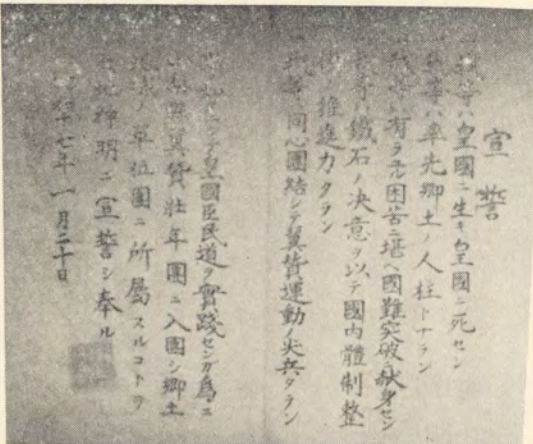 宣誓
一、我等ハ皇國ニ生キ皇國ニ死セン
一、我等ハ率先郷土ノ人柱トナラン
一、我等ハ有ラユル困苦ニ堪ヘ國難突破ニ獻身セン
一、我等ハ鐵石ノ決意ヲ以テ國内體制整
推進力タラン
一、我等同心團結シテ翼賛運動ノ尖兵タラン
皇國臣民道ヲ實踐センガ為ニ
翼賛壮年團ニ入團シ郷土
地域ノ單位團ニ所屬スルコトヲ
神明ニ宣誓シ奉ル
昭和十七年一月二十日